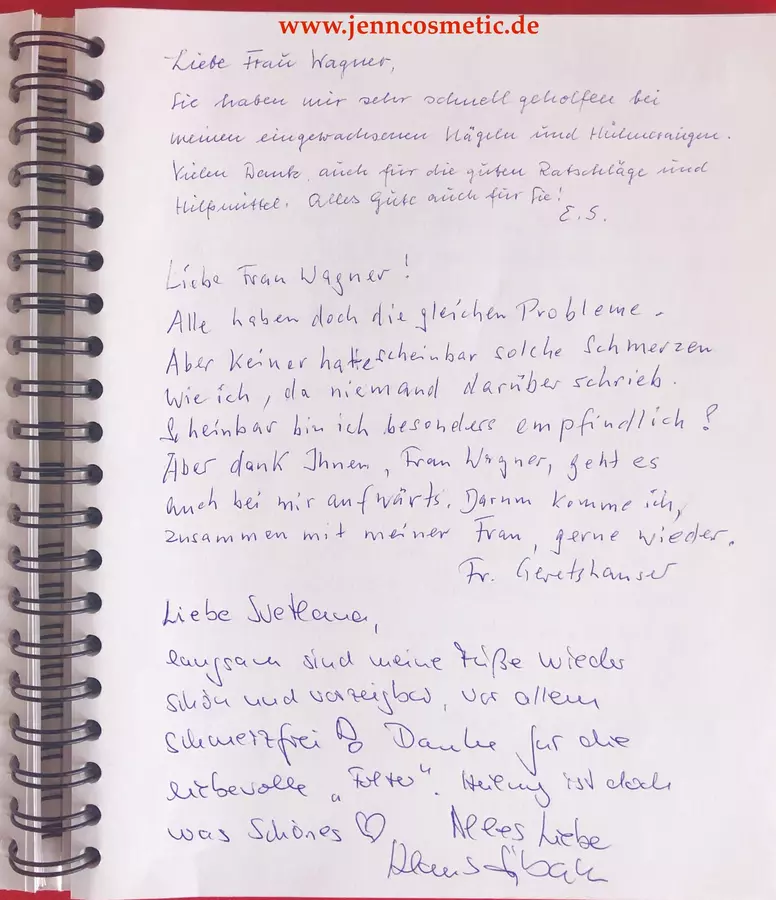 www.jenncosmetic.de
Liebe Frau Wagner,
Sie haben mir sehr schnell geholfen bei
meinen eingewachsenen Nägeln und Hühneraugen.
Vielen Dank auch für die guten Ratschläge und
Hilfsmittel. Alles Gute auch für Sie!
E. S.
Liebe Frau Wagner!
Alle haben doch die gleichen Probleme.
Aber Keiner hatte scheinbar solche Schmerzen
wie ich, da niemand darüber schrieb.
Scheinbar bin ich besonders empfindlich?
Aber dank Ihnen, Frau Wagner, geht es
auch bei mir aufwärts. Darum komme ich,
zusammen mit meiner Frau, gerne wieder.
Fr. Geretshauser
Liebe Svetlana,
langsam sind meine Füße wieder
schön und vorzeigbar, vor allem
schmerzfrei Danke für die
liebevolle „Folter“. Heilung ist doch
was Schönes ♡ Alles Liebe